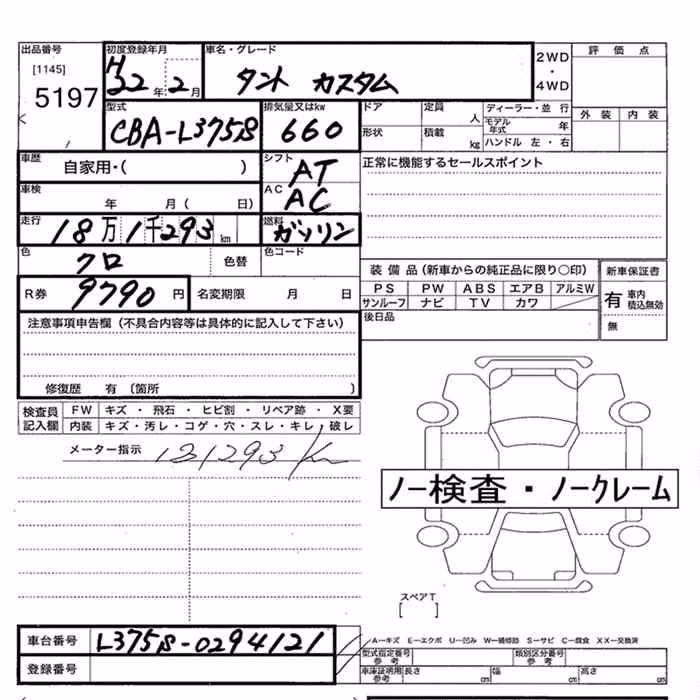 出品番号 初度登録年月 車名・グレード 2WD・4WD 評価点
[1145] H22年2月 タント カスタム
5197 外装 内装
型式 排気量又はkw ドア 定員 人 ディーラー・並 行
CBA-L375S 660 モデル年式 年
形状 積載 kg ハンドル 左・右
車歴 自家用・( ) シフト AT 正常に機能するセールスポイント
車検 年 月( 日) AC AC
走行 18万1千293km 燃料 ガソリン
色 クロ 色替 色コード
装備品(新車からの純正品に限り○印) 新車保証書
R券 9790円 名変期限 月 日
PS PW ABS エアB アルミW 有 車内積込無効
サンルーフ ナビ TV カワ
後日品 無
注意事項申告欄(不具合内容等は具体的に記入して下さい)
修復歴 有 (箇所 )
検査員記入欄 FW キズ・飛石・ヒビ割・リペア跡・X要
内装 キズ・汚レ・コゲ・穴・スレ・キレ・破レ
メーター指示 181293Km
ノー検査・ノークレーム
スペアT
[ ]
車台番号 L375S-0294121
A―キズ E―エクボ U―凹み W―補修跡 S―サビ C―腐食 XX―交換済
型式指定番号 参考 類別区分番号 参考
登録番号 車庫証明用参考 長さ cm 幅 cm 高さ cm